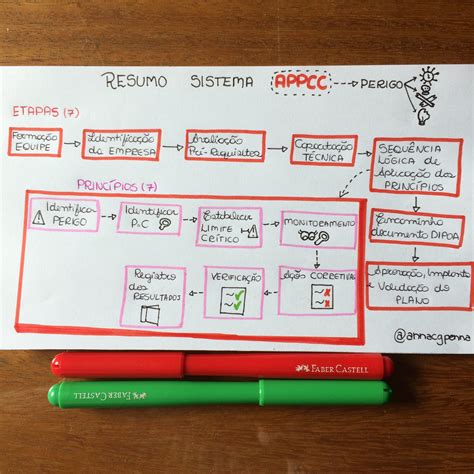 RESUMO SISTEMA APPCC PERIGO
ETAPAS (7)
Formação
EQUIPE
Identificação
da EMPRESA
Avaliação
Pré-Requisitos
Capacitação
TÉCNICA
SEQUÊNCIA
LÓGICA de
Aplicação dos
PRINCÍPIOS
PRINCÍPIOS (7)
Identificar
PERIGO
Identificar
P.C
Estabelecer
LIMITE
CRÍTICO
MONITORAMENTO
Encaminha
documento DIPOA
Registro
dos
RESULTADOS
VERIFICAÇÃO
AÇÃO CORRETIVA
Aprovação, Implant.
e Validação do
PLANO
@annacgpenna
FABER CASTELL
FABER-CASTELL